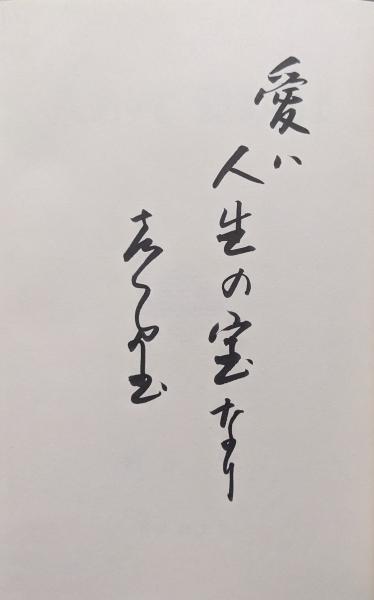 愛は
人生の宝なり